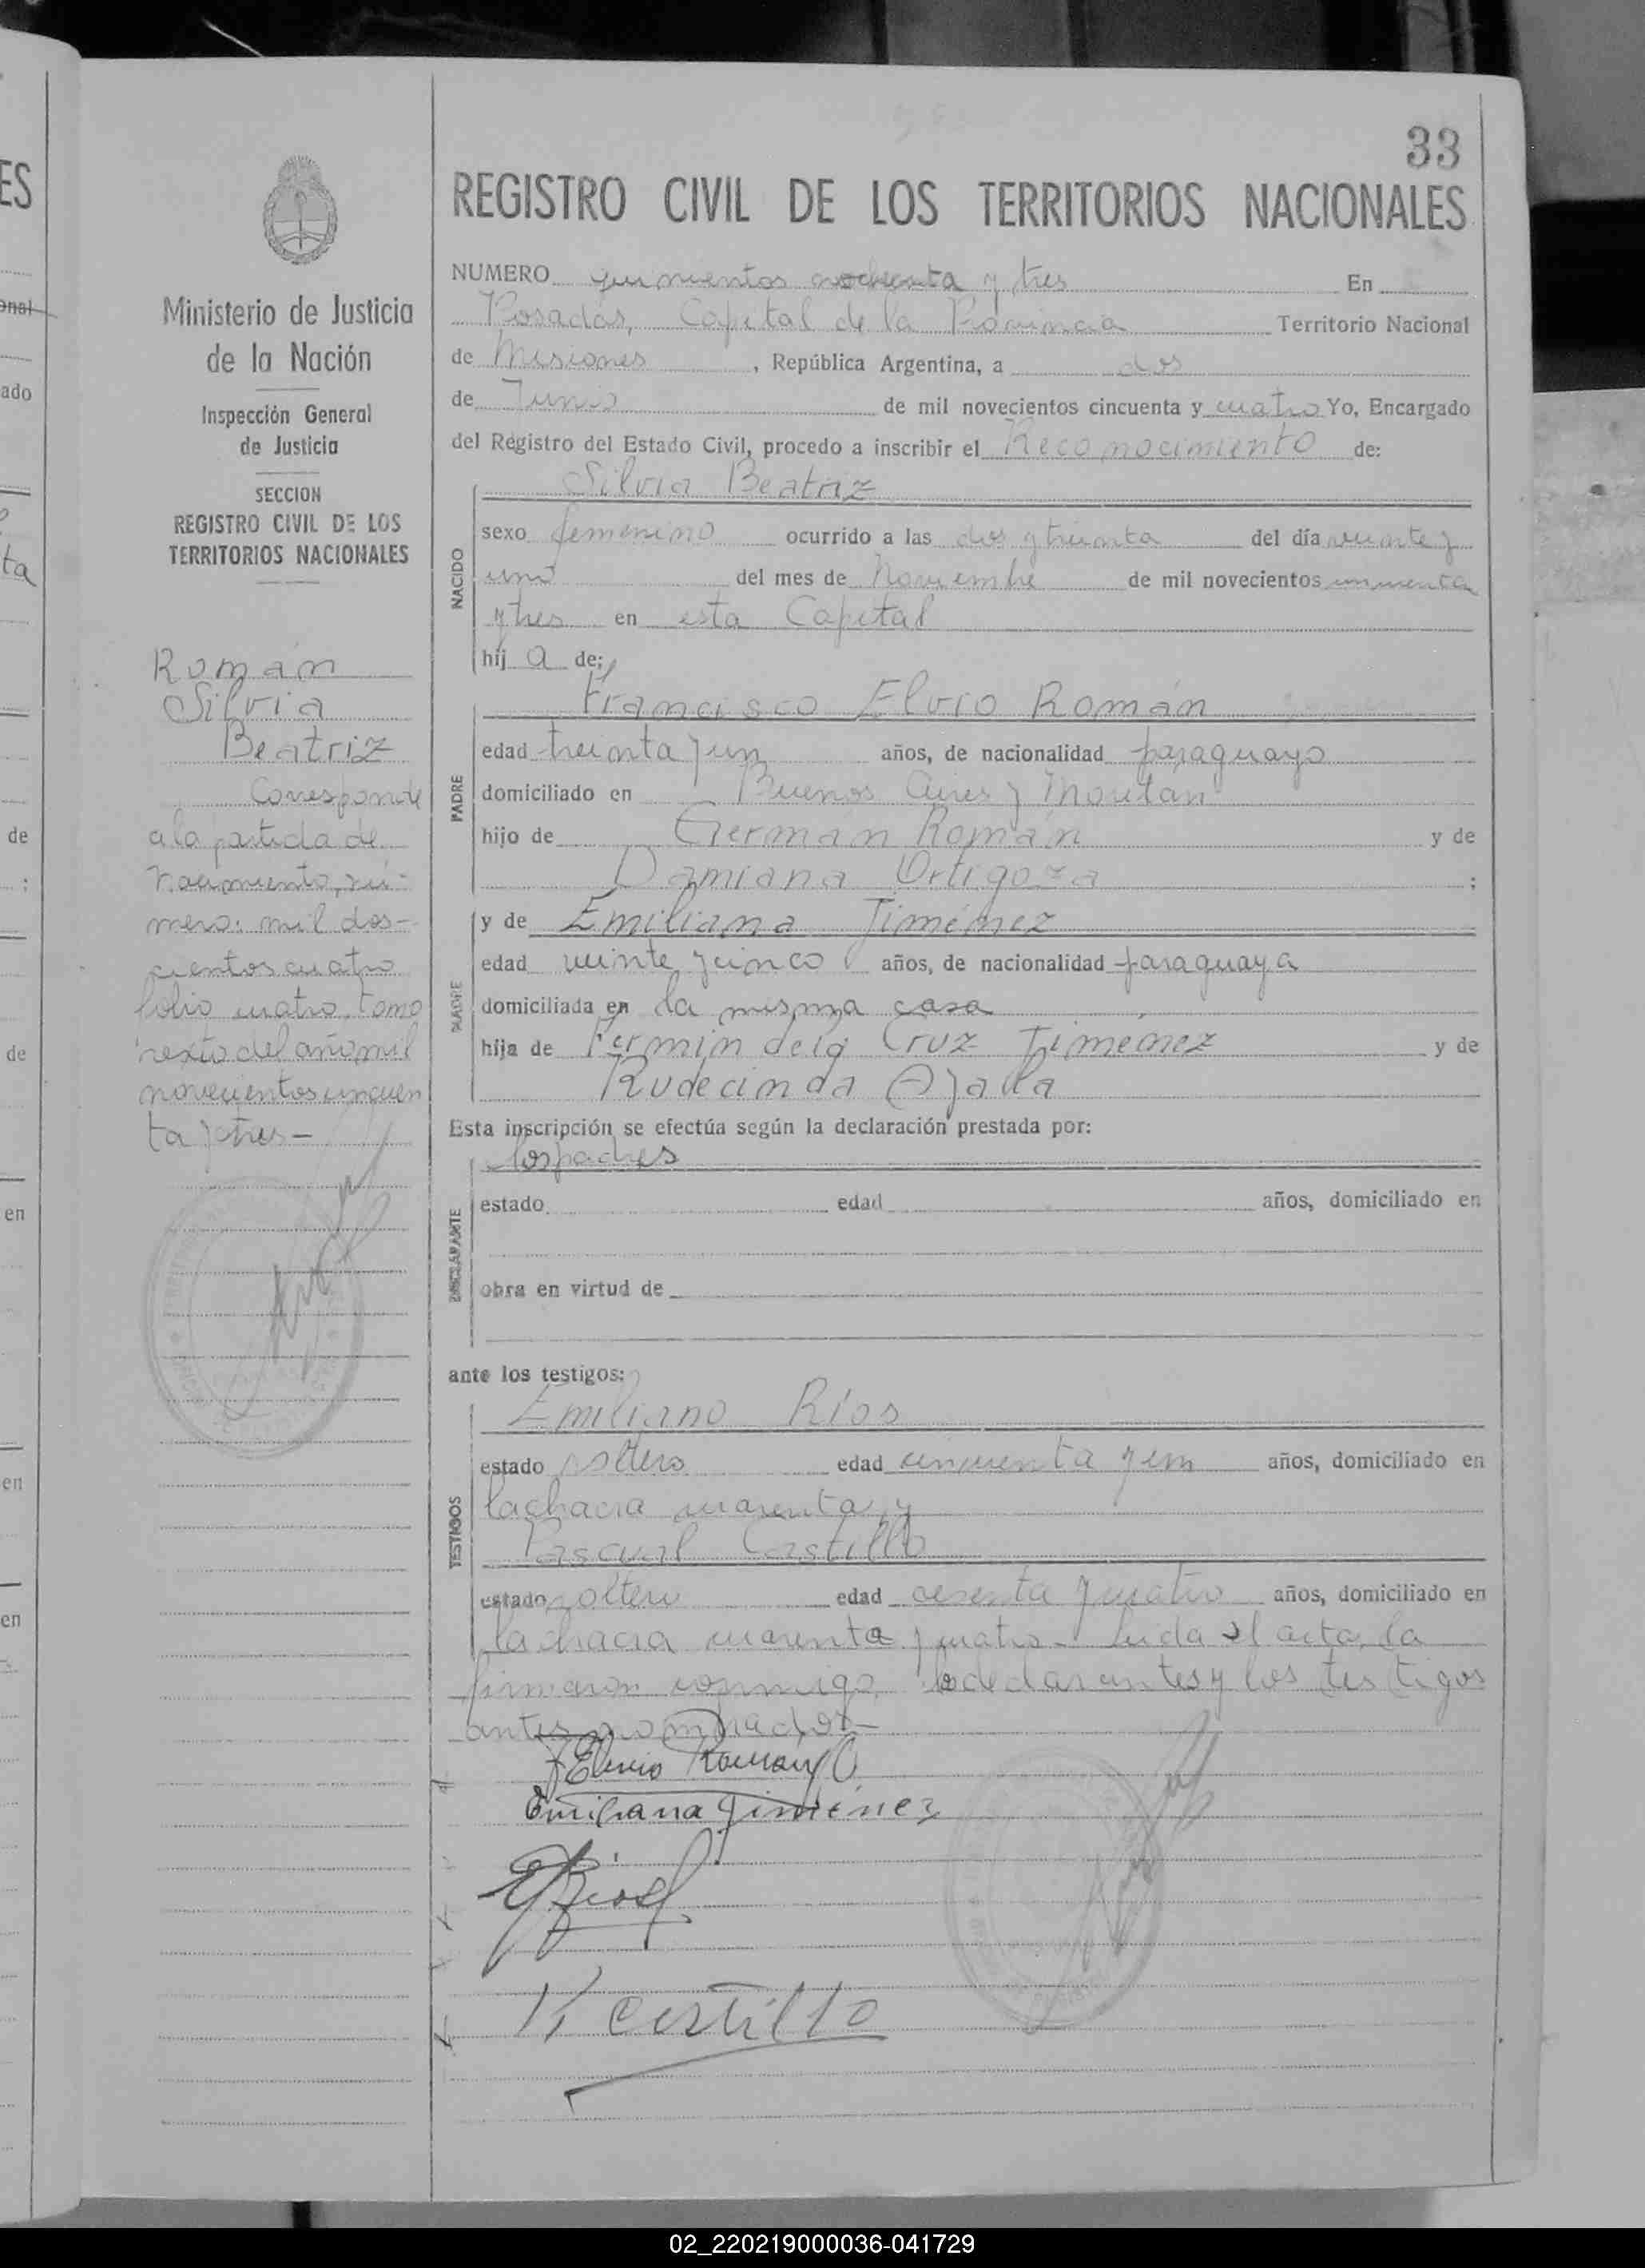 33
REGISTRO CIVIL DE LOS TERRITORIOS NACIONALES
Ministerio de Justicia
de la Nación
Inspección General
de Justicia
SECCION
REGISTRO CIVIL DE LOS
TERRITORIOS NACIONALES
Román
Silvia
Beatriz
Corresponde
a la partida de
nacimiento, nú-
mero: mil dos-
cientos cuatro
folio cuatro, tomo
sexto del año mil
novecientos cincuen
ta y tres —
NUMERO quinientos y tres En
Posadas, Capital de la Provincia Territorio Nacional
de Misiones, República Argentina, a dos
de Junio de mil novecientos cincuenta y cuatro Yo, Encargado
del Registro del Estado Civil, procedo a inscribir el Reconocimiento de:
Silvia Beatriz
NACIDO
sexo femenino ocurrido a las dos y treinta del día veinte y
uno del mes de Noviembre de mil novecientos cincuenta
y tres en esta Capital
hij a de;
Francisco Elvio Román
PADRE
edad treinta y un años, de nacionalidad paraguayo
domiciliado en Buenos Aires y
hijo de Germán Román y de
Damiana Ortigoza ;
y de Emiliana Jiménez
MADRE
edad veinte y cinco años, de nacionalidad paraguaya
domiciliada en la misma casa
hija de Fermin de la Cruz Jiménez y de
Rudecinda Ayala
Esta inscripción se efectúa según la declaración prestada por:
los padres
DECLARANTE
estado edad años, domiciliado en
obra en virtud de
ante los testigos:
Emiliano Ríos
TESTIGOS
estado soltero edad cincuenta y un años, domiciliado en
la chacra cuarenta y
Pascual Castillo
estado soltero edad cesenta y cuatro años, domiciliado en
la chacra cuarenta y cuatro - Leida el acta, la
firmaron conmigo, los declarantes y los testigos
antes nombrados —
F Elvio Roman O
Emiliana Jiménez
E Rios
P. Castillo
02_220219000036-041729